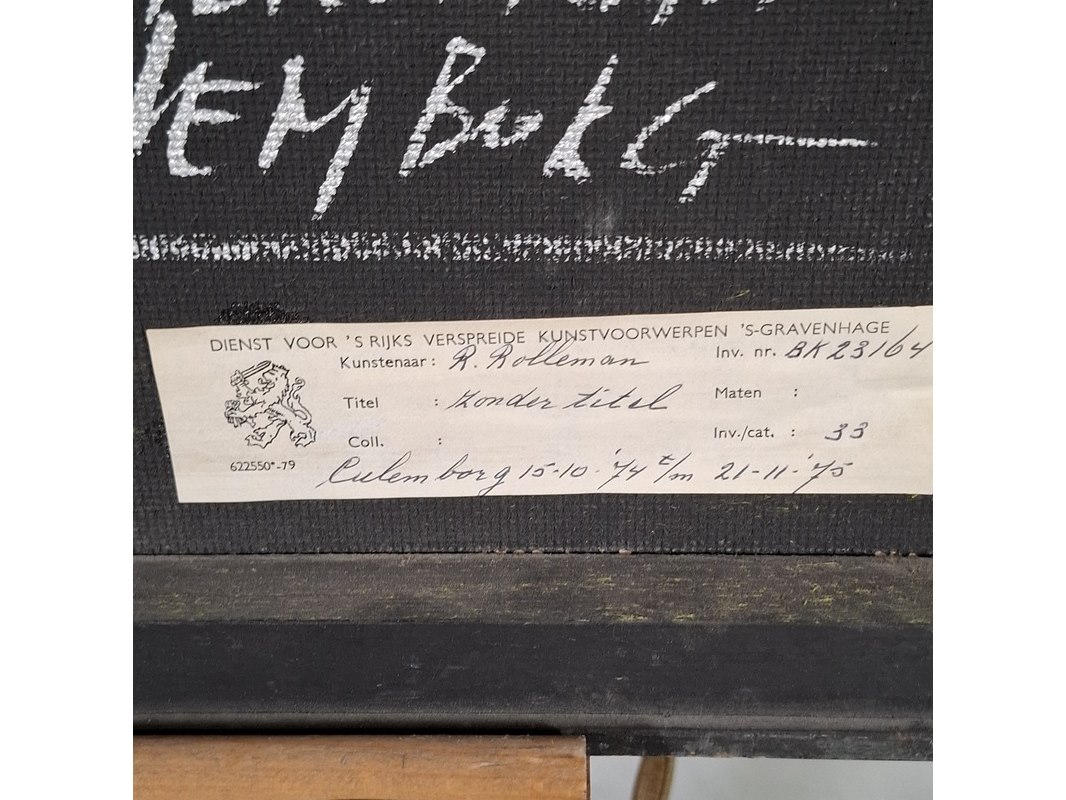 EMBORG
DIENST VOOR 'S RIJKS VERSPREIDE KUNSTVOORWERPEN 'S-GRAVENHAGE
Kunstenaar : R. Rolleman Inv. nr. BK23164
Titel : Zonder titel Maten :
Coll. : Inv./cat. : 33
622550*-79 Culemborg 15-10-'74 t/m 21-11-'75